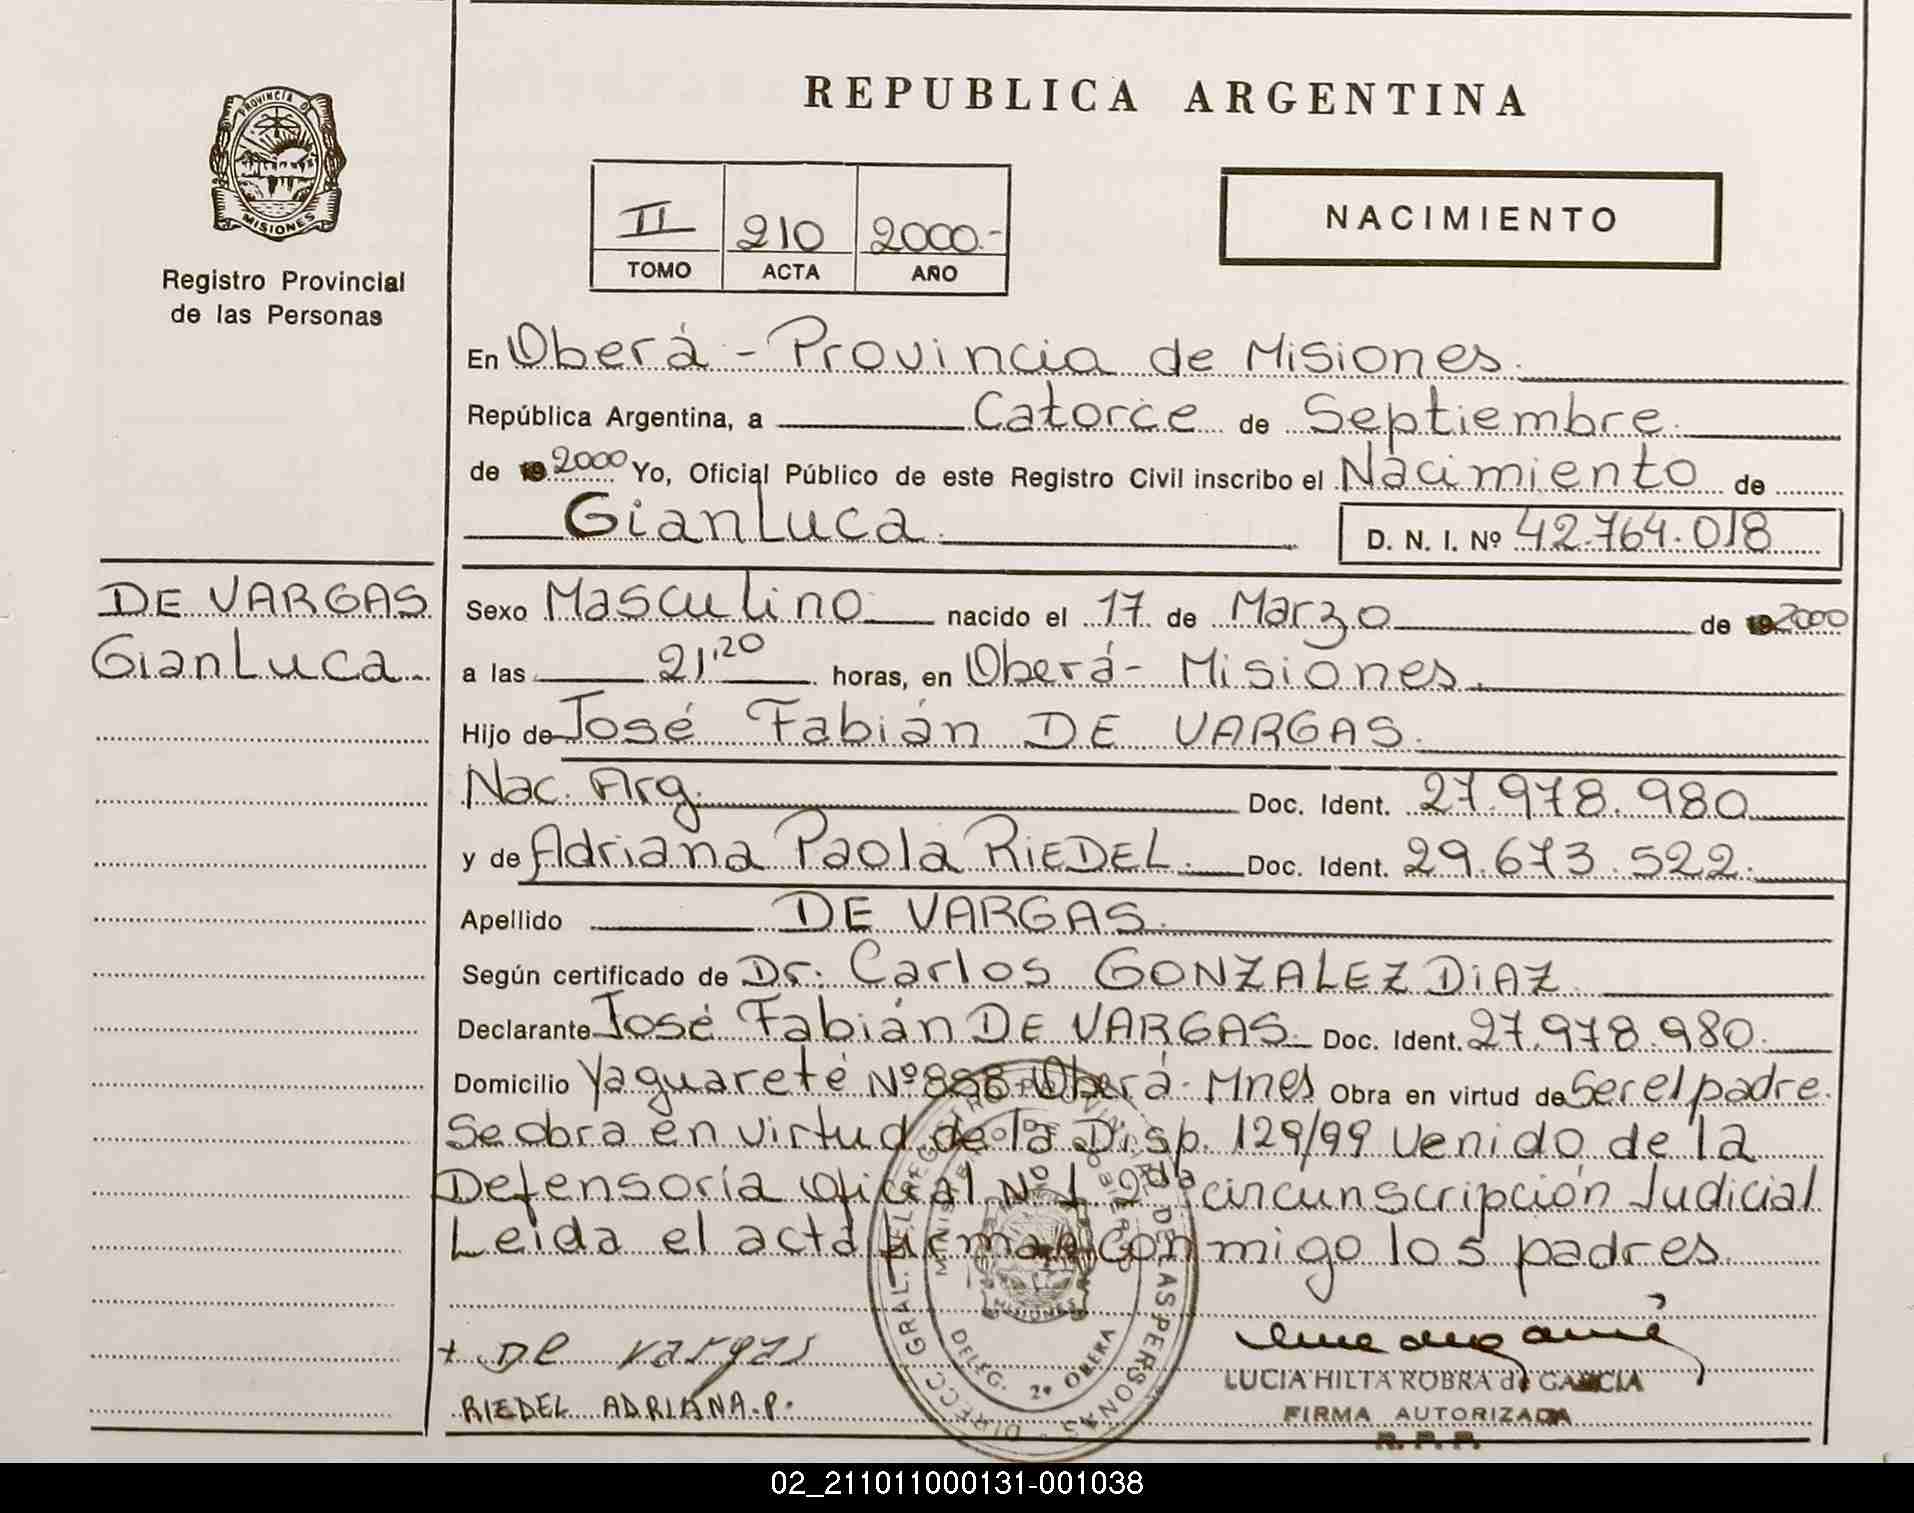 REPUBLICA ARGENTINA
PROVINCIA D
MISIONES
Registro Provincial
de las Personas
II 210 2000.-
TOMO ACTA AÑO
NACIMIENTO
En Oberá - Provincia de Misiones.
República Argentina, a Catorce de Septiembre.
de 19 2000 Yo, Oficial Público de este Registro Civil inscribo el Nacimiento de
GianLuca. D. N. I. Nº 42.764.018
DE VARGAS
GianLuca
Sexo Masculino nacido el 17 de Marzo de 19 2000
a las 21,20 horas, en Oberá - Misiones.
Hijo de José Fabián DE VARGAS.
Nac. Arg. Doc. Ident. 27.978.980
y de Adriana Paola RiEDEL. Doc. Ident. 29.673.522.
Apellido DE VARGAS.
Según certificado de Dr. Carlos GONZALEZ DiAZ
Declarante José Fabián DE VARGAS. Doc. Ident. 27.978.980.
Domicilio Yaguareté Nº 888 - Oberá - Mnes Obra en virtud de Ser el padre.
Se obra en virtud de la Disp. 129/99 venido de la
Defensoría Oficial Nº 1 2da circunscripción Judicial
Leida el acta firman conmigo los padres.
DIRECC. GRAL. DEL REGISTRO PROVINCIAL DE LAS PERSONAS
DELEG. 2ª OBERA
MISIONES
+ De vargas
RIEDEL ADRIANA.P.
LUCIA HILTA ROBRA de GARCIA
FIRMA AUTORIZADA
R. P. P.
02_211011000131-001038